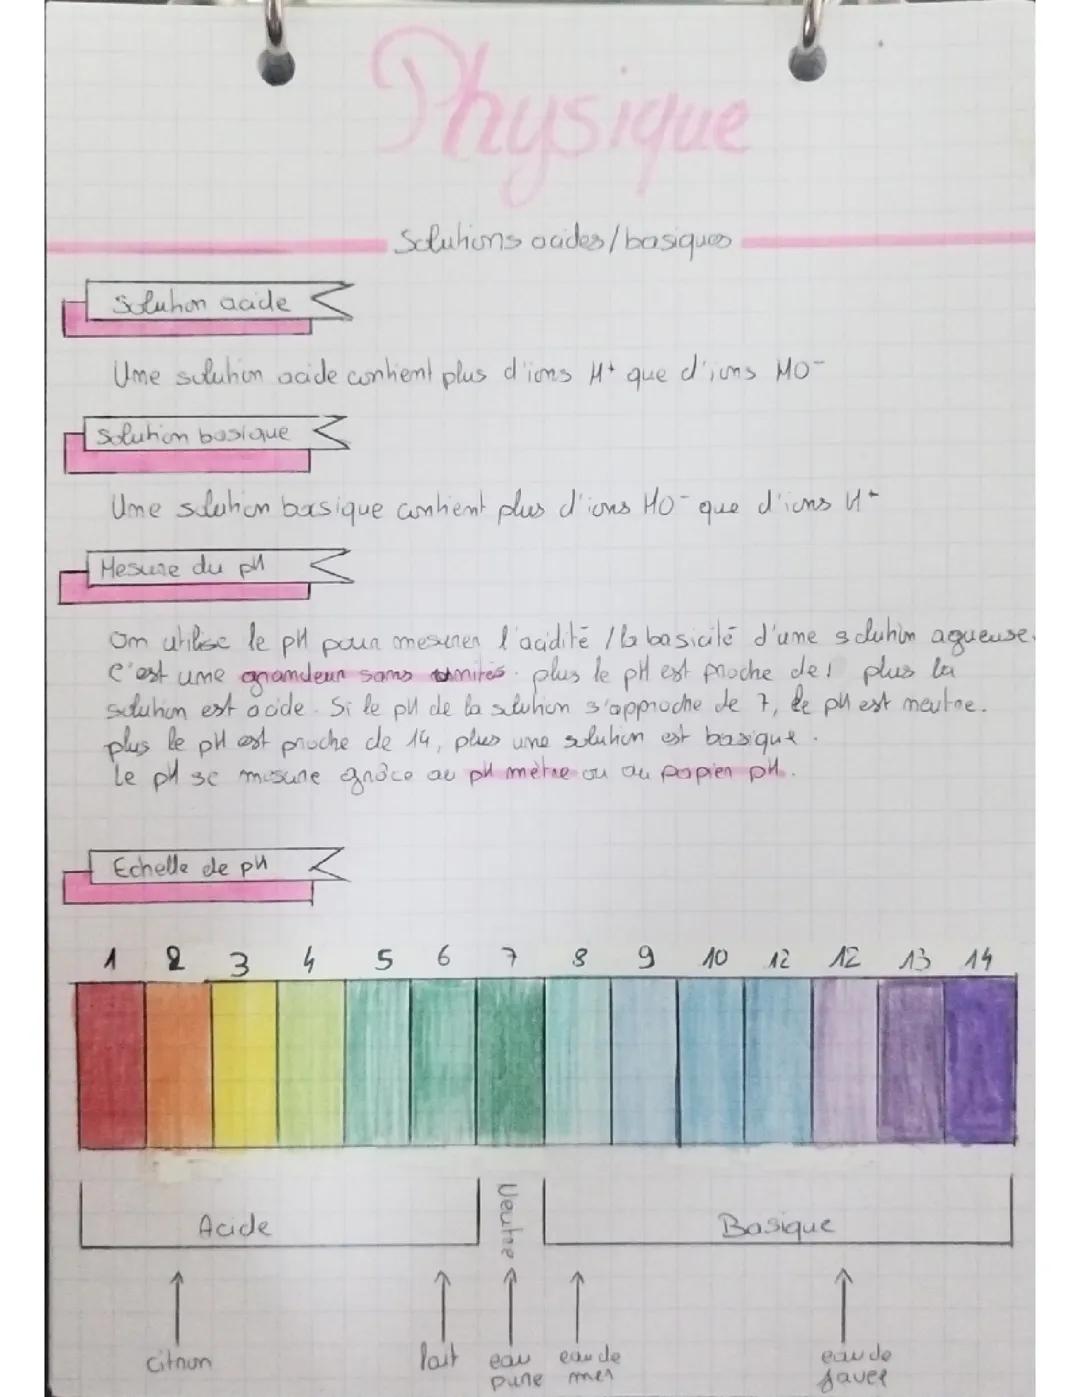 Physique
Solutions acides/basiques
Solution acide
Une solution acide contient plus d'ions H+ que d'ions HO-
Solution basique
Une solution basique contient plus d'ions HO- que d'ions H+
Mesure du pH
On utilise le pH pour mesurer l'acidité / la basicité d'une solution aqueuse.
C'est une grandeur sans unités. plus le pH est proche de 1 plus la
solution est acide. Si le pH de la solution s'approche de 7, le pH est neutre.
plus le pH est proche de 14, plus une solution est basique.
Le pH se mesure grâce au pH mètre ou au papier pH.
Echelle de pH
1 2 3 4 5 6 7 8 9 10 12 12 13 14
Acide Neutre Basique
citron lait eau pure eau de mer eau de javel